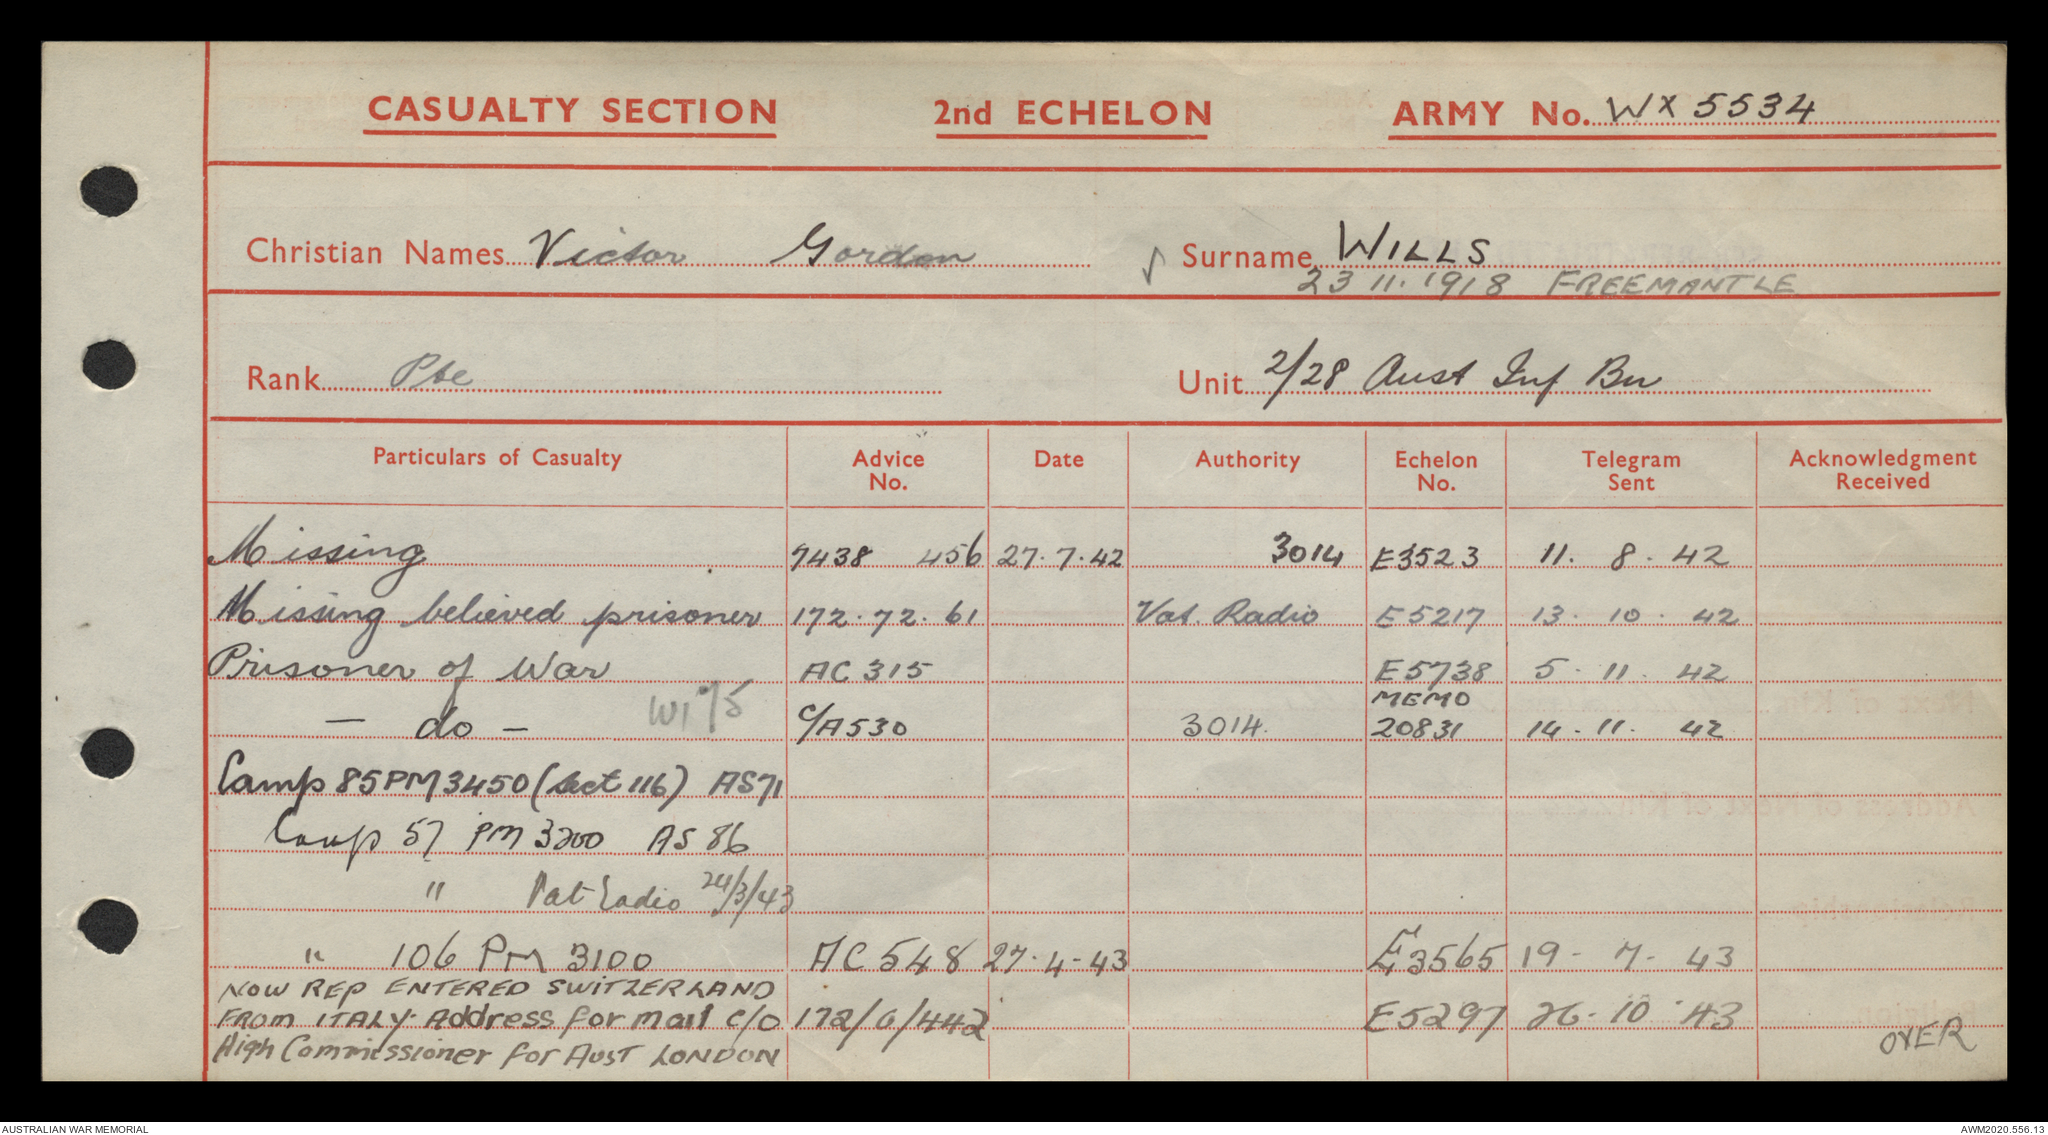 CASUALTY SECTION 2nd ECHELON ARMY No. WX 5534
Christian Names Victor Gordon Surname WILLS
23 11. 1918 FREEMANTLE
Rank Pte Unit 2/28 Aust Inf Bn
Particulars of Casualty Advice No. Date Authority Echelon No. Telegram Sent Acknowledgment Received
Missing 7438 456 27.7.42 3014 E3523 11. 8. 42
Missing believed prisoner 172.72.61 Vat. Radio E5217 13. 10. 42
Prisoner of War AC 315 E5738 5. 11. 42
MEMO
— do — C/A530 3014. 20831 14. 11. 42
Camp 85 PM 3450 (Sect 116) AS71
Camp 57 PM 3200 AS 86
" 24/3/43
" 106 PM 3100 AC 548 27.4-43 E3565 19 - 7 - 43
NOW REP ENTERED SWITZERLAND
FROM ITALY. Address for mail c/o 172/6/442 E5297 26. 10 43
High Commissioner for AUST LONDON
OVER
AUSTRALIAN WAR MEMORIAL AWM2020.556.13